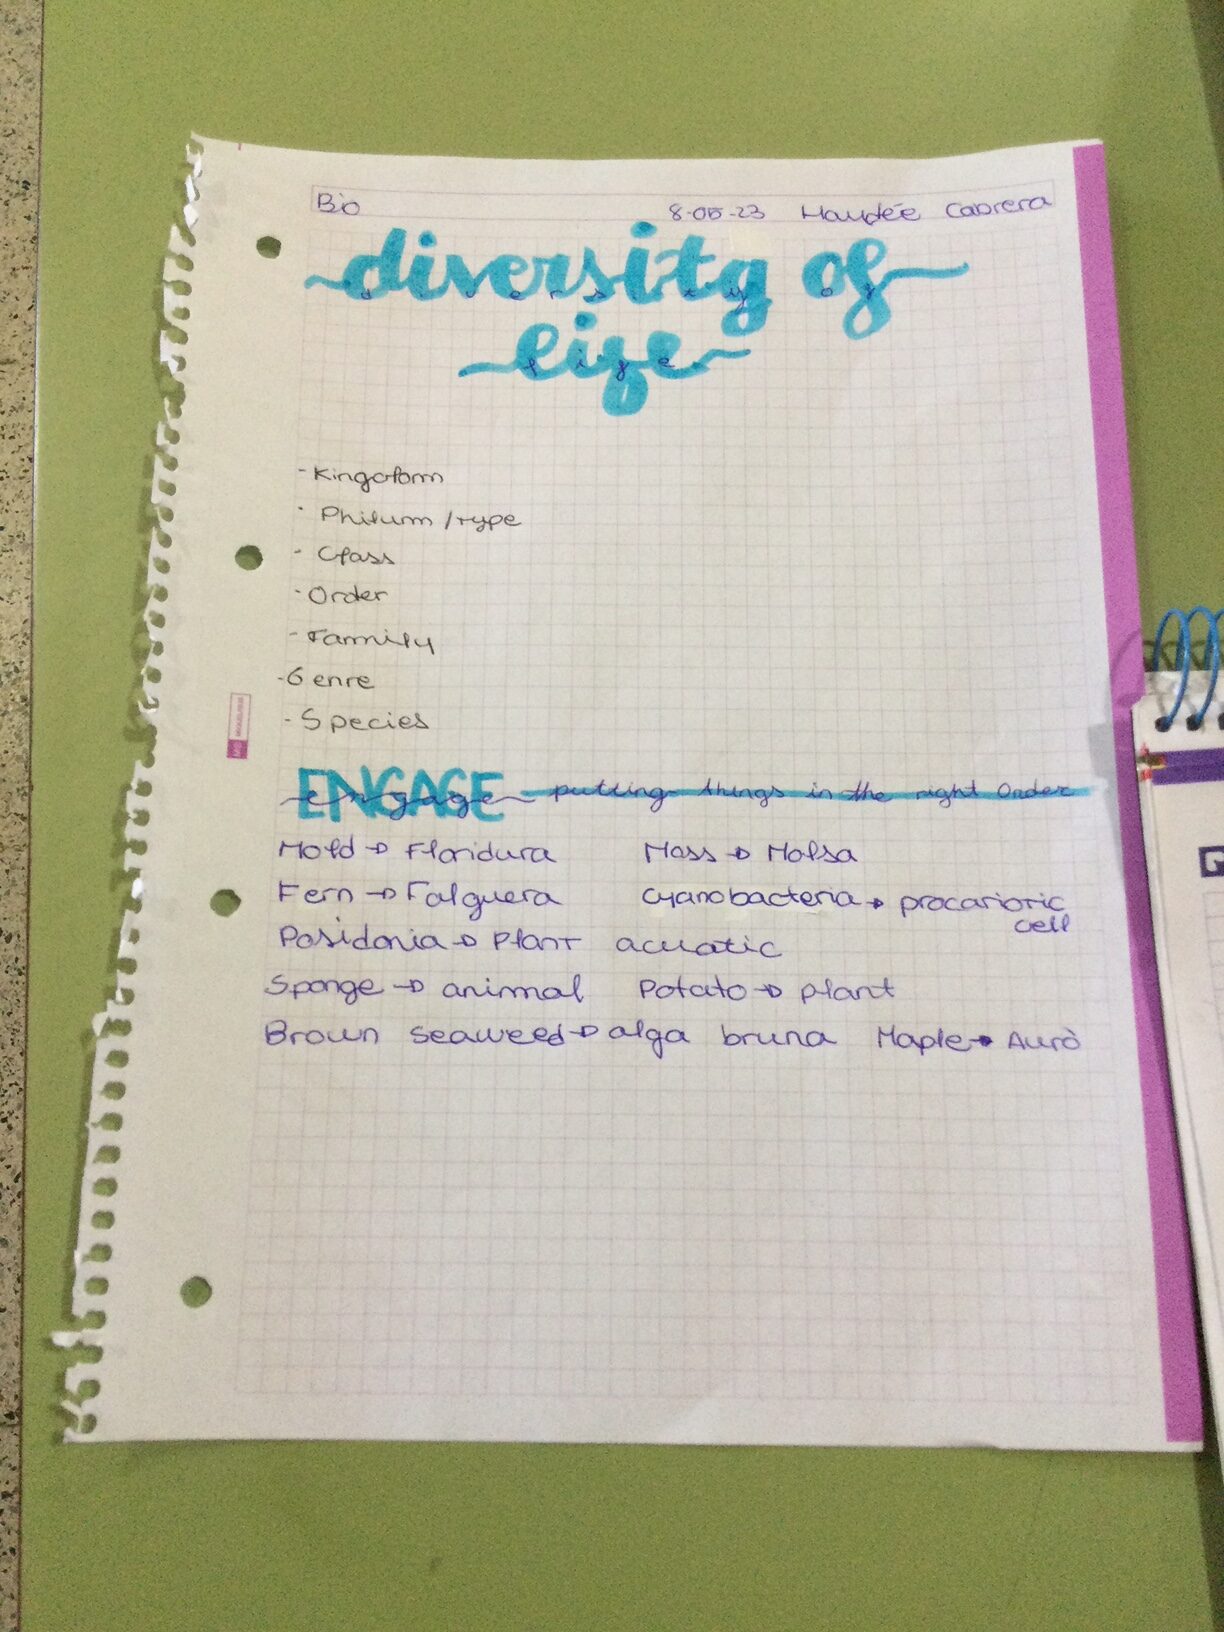 Bio 8-05-23 Haydée Cabrera
diversity of
life
- Kingdom
- Philum / type
- Class
- Order
- Family
- Genre
- Species
ENGAGE putting things in the right Order
engage
Mold → Floridura Moss → Molsa
Fern → Falguera Cyanobacteria → procariotic
cell
Posidonia → Plant acuatic
Sponge → animal Potato → plant
Brown seaweed → alga bruna Maple → Auró